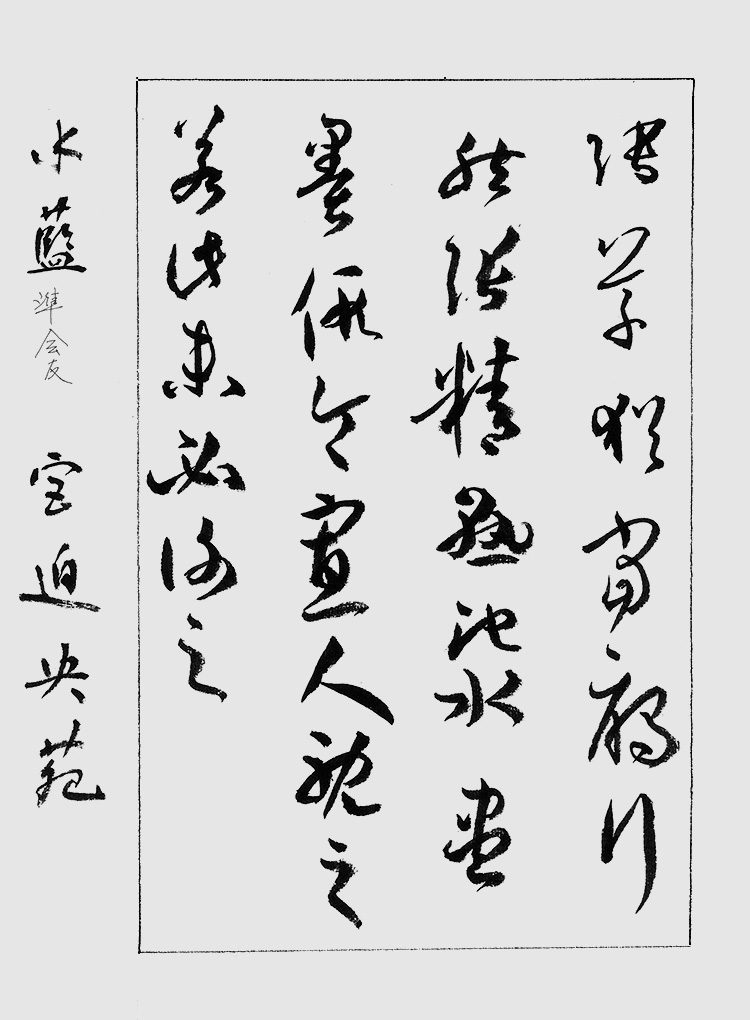 張草猶當鴈行
然張精熟池水盡
墨假令寡人耽之
若此未必謝之
水藍準会友 宮迫央苑